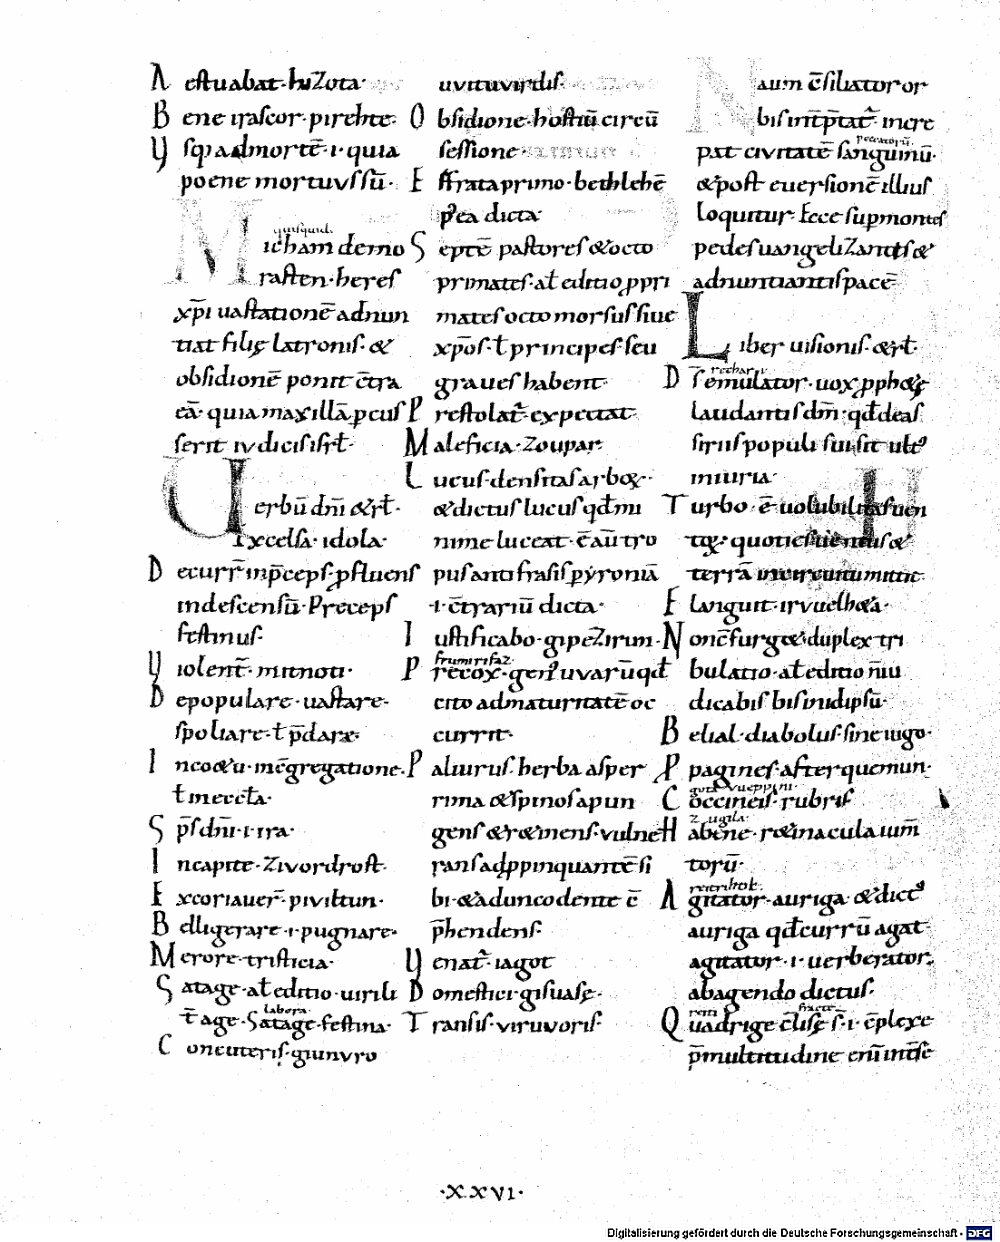 Aestuabat· huzota·
Bene irascor· pirehte·
Vsq; ad mortē· ·i· quia
poene mortuus sū·
quisquid·
Micham demo
rasten· heres
xp̄i uastationē adnun
tiat filię latronis· &
obsidionē ponit c̄tra
eā· quia maxillā pcus
serit iudicis isrł·
Uerbū dnī &rł·
Excelsa· idola·
Decurr̄ in p̄ceps· pfluens
in descensū· Preceps
festinus·
Violent̄· mitnoti·
Depopulare· uastare·
spoliare· ł p̄dare·
In co&u· in c̄gregatione·
ł mercła·
Sp̄s dnī· ·i· ira·
In capite· zivordrost·
Excoriauer̄· piviltun·
Belligerare ·i· pugnare·
Merore· tristicia·
Satage· ał editio· uirili
labora·
ł age· Satage· festina·
Conteuteris· giunvro
uvituvirdis·
Obsidione· hostiū circū
sessione·
Effrata primo· bethlehē
p̄ea dicta·
Septē pastores &octo
primates· ał editio ppri
mates octo morsus siue
xp̄os· ł principes seu
graues habent·
Prestolat̄· expectat·
Maleficia· zoupar·
Lucus· densitas arboꝝ·
&dictus lucus qd̄ mi
nime luceat· c̄ aū tro
pus antifrasis p yroniā
·i· c̄trariū dicta·
Iustificabo· gipezirun·
frumirifaz·
Precox· gen' uvarū qd̄
cito ad maturitatē oc
currit·
Paliurus· herba asper
rima &spinosa pun
gens &r&inens· vulne
rans adppinquantē si
bi· &adunco dente c̄
p̄hendens·
Venat̄· iagot
Domestici· gisuase·
Transis· viruvoris·
Naum c̄siliator or
bis int̄p̄tat̄· incre
peccatorū·
pat civitatē sanguinū·
&post euersionē illius
loquitur· Ecce sup montes
pedes uangelizantis &
adnuntiantis pacē·
Liber uisionis· &rł·
rechari·
Demulator· uox pph&ę
laudantis dm̄· qd̄ de as
siriis populi sui sit ult'
iniuria·
Turbo· ē uolubilitas uen
toꝝ· quoties uentus &
terrā in circuitu mittit·
Elanguit· irvuelh&a·
Non c̄surg&· duplex tri
bulatio· ał editio n̄ iu
dicabis bis in idipsū·
Belial· diabolus· sine iugo·
Ppagines· after quemun·
gotavueppini·
Coccineis· rubris
zugila·
Habene· r&inacula ium̄
torū·
reitriht·
Agitator· auriga &dict'
auriga qd̄ currū agat
agitator· ·i· uerberator·
ab agendo dictus·
Quadrige c̄lisę s̄· ·i· c̄plexe
p̄ multitudine
·XXVI·
Digitalisierung gefördert durch die Deutsche Forschungsgemeinschaft - DFG